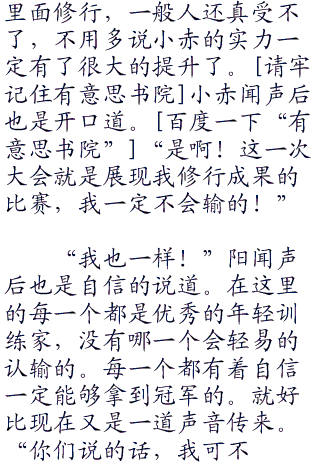 里面修行，一般人还真受不
了，不用多说小赤的实力一
定有了很大的提升了。[请牢
记住有意思书院]小赤闻声后
也是开口道。[百度一下“有
意思书院”]“是啊！这一次
大会就是展现我修行成果的
比赛，我一定不会输的！”
“我也一样！”阳闻声
后也是自信的说道。在这里
的每一个都是优秀的年轻训
练家，没有哪一个会轻易的
认输的。每一个都有着自信
一定能够拿到冠军的。就好
比现在又是一道声音传来。
“你们说的话，我可不